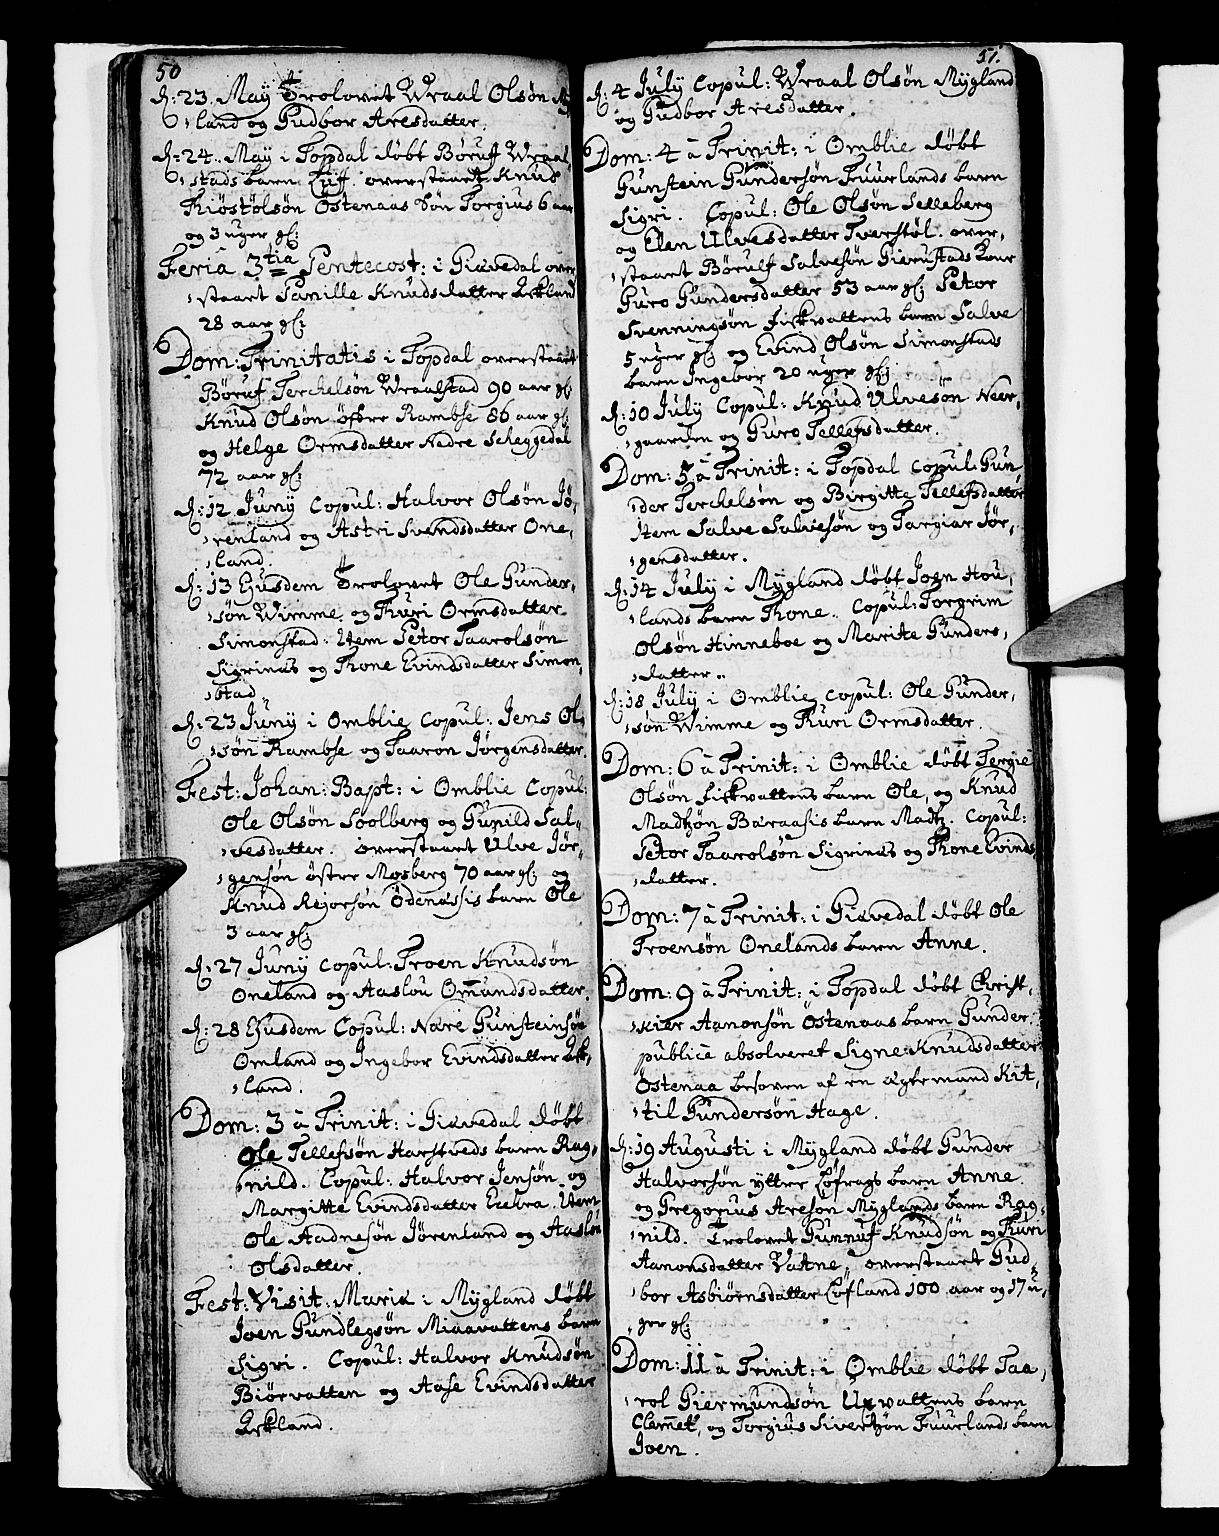 50
d: 23. May Trolovet Wraal Olsøn My-
land og Gudbor Aresdatter.
d: 24. May i Topdal døbt Børuf Wraal-
stads barn Liif. overstaaet Knud
Kiøstølsøn Ostenaas Søn Torgius 6 aar
og 3 uger gl:
Feria 3tia Pentecost: i Giøvedal over-
staaet Pernille Knudsdatter Askland
28 aar gl:
Dom: Trinitatis i Topdal overstaaet
Børuf Terchelsøn Wraalstad 90 aar gl:
Knud Olsøn øfvre Rambse 86 aar gl:
og Helge Ormsdatter Nedre Scheggedal
72 aar gl:
d: 12 Juny Copul: Halvor Olsøn Jø-
renland og Astri Svendsdatter One-
land.
d: 13 Ejusdem Trolovet Ole Gunder-
søn Wimme og Thuri Ormsdatter
Simonstad. Item Petor Taarolsøn
Sigrinæs og Thone Evindsdatter Simon-
stad
d: 23 Juny i Omblie Copul: Jens Ol-
søn Rambse og Taaron Jørgensdatter.
Fest: Johan: Bapt: i Omblie Copul:
Ole Olsøn Soolberg og Gunild Sal-
vesdatter. overstaaet Ulve Jør-
gensøn østre Mosberg 70 aar gl: og
Knud Rejorsøn Ødenæssis barn Ole
3 aar gl:
d: 27 Juny Copul: Troen Knudsøn
Oneland og Aaslou Omundsdatter.
d: 28 Ejusdem Copul: Nare Gunsteinsøn
Omland og Ingebor Evindsdatter Ask-
land.
Dom: 3 à Trinit: i Giøvedal døbt
Ole Tellefsøn Harstveds barn Rag-
nild. Copul: Halvor Jensøn og
Margitte Evindsdatter Exelra. Item
Ole Aadnesøn Jørenland og Aaslou
Olsdatter.
Fest: Visit: Mariæ i Mygland døbt
Joen Gundlegsøn Miaavattens barn
Sigri. Copul: Halvor Knudsøn
Biørvatten og Aase Evindsdatter
Askland.
51.
d: 4 July Copul: Wraal Olsøn Mygland
og Gudbor Aresdatter.
Dom: 4 à Trinit: i Omblie døbt
Gunstein Gundersøn Fuurlands barn
Sigri. Copul: Ole Olsøn Selleberg
og Elen Ulvesdatter Tverstøl. over-
staaet Børulf Salvesøn Gierustads Kone
Guro Gundersdatter 53 aar gl: Petor
Svenningsøn Fiskvattens barn Salve
5 uger gl: og Evind Olsøn Simonstads
barn Ingebor 20 uger gl:
d: 10 July Copul: Knud Ulvesøn Neer-
gaarden og Guro Tellefsdatter.
Dom: 5 à Trinit: i Topdal Copul: Gun-
der Terchelsøn og Birgitte Tellefsdatter
Item Salve Salvesøn og Targiær Jør-
gensdatter.
d: 14 July i Mygland døbt Joen Hou-
lands barn Thone. Copul: Torgrim
Olsøn Hinneboe og Marite Gunders-
datter.
d: 18 July i Omblie Copul: Ole Gunder-
søn Wimme og Thuri Ormsdatter.
Dom: 6 à Trinit: i Omblie døbt Tergie
Olsøn Fiskvattens barn Ole, og Knud
Madtzøn Baraasis barn Madtz. Copul:
Petor Taarolsøn Sigrinæs og Thone Evinds-
datter.
Dom: 7 à Trinit: i Giøvedal døbt Ole
Troensøn Onelands barn Anne.
Dom: 9 à Trinit: i Topdal døbt Christ-
Aanonsøn Ostenaas barn Gunder
publicè absolveret Signe Knudsdatter
Østenaa besoven af en ægtemand Kit-
til Gundersøn Hage.
d: 19 Augusti i Mygland døbt Gunder
Halvorsøn yttre Løfrags barn Anne
og Gregorius Aresøn Myglands barn Rag-
nild. Trolovet Gunnuf Knudsøn og Thuri
Aanonsdatter Vatne, overstaaet Gud-
bor Asbiørnsdatter Løfland 100 aar og 17 u-
ger gl:
Dom: 11 à Trinit: i Omblie døbt Taa-
rol Giermundsøn Uxvattens barn
Clemmet, og Torgius Sivertzøn Fuurlands barn
Joen.